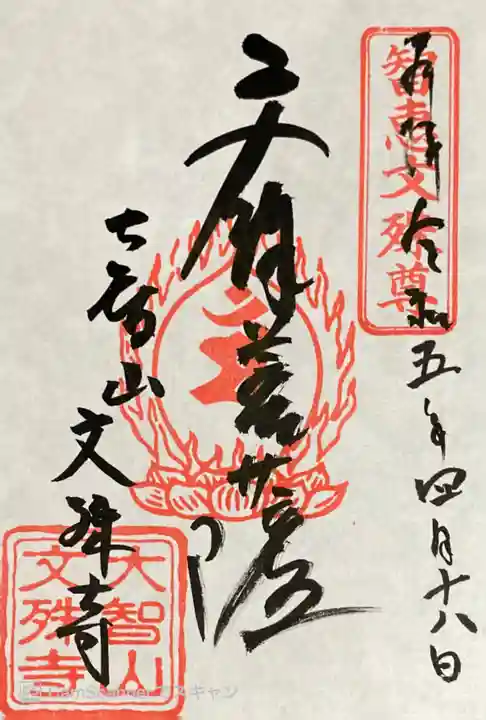 奉拝 令和五年四月十八日
智恵文殊尊
文殊菩薩
大智山文殊寺
大智山
文殊寺
CamScanner でスキャン